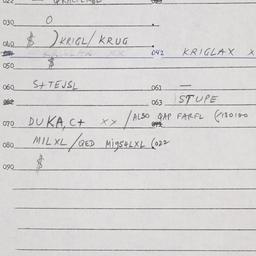 030 O
040 $ ) KRIGL / KRUG
042 KRIGLAX X
050 $
060 S+TEJSL
061 —
063 STUPE
070 DUKA, C+ XX / ALSO QAP FARFL
080 MILXL / QED MI954LXL (022
090 $